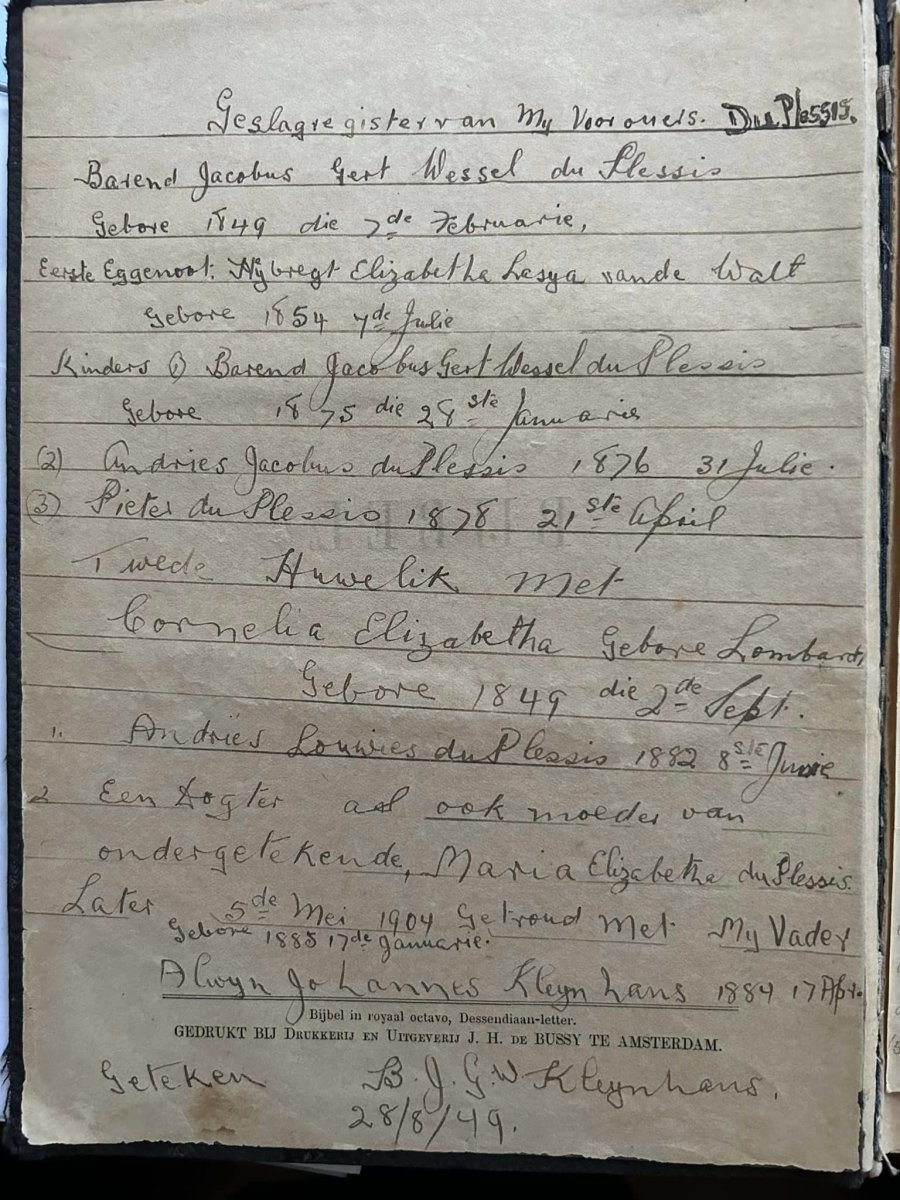 Geslagregister van My Voorouers. Du Plessis.
Barend Jacobus Gert Wessel du Plessis
Gebore 1849 die 7de Februarie,
Eerste Eggenoot: Hybregt Elizabetha Lesya van de Walt
Gebore 1854 7de Julie
Kinders (1) Barend Jacobus Gert Wessel du Plessis
Gebore 1875 die 28ste Januarie
(2) Andries Jacobus du Plessis 1876 31 Julie.
(3) Pieter du Plessis 1878 21ste April
Twede Huwelik met
Cornelia Elizabetha Gebore Lombard,
Gebore 1849 die 2de Sept.
1. Andries Louwies du Plessis 1882 8ste Junie
2 Een Dogter as ook moeder van
ondergetekende, Maria Elizabetha du Plessis.
Later 5de Mei 1904 Getroud Met My Vader
Gebore 1885 17de Januarie.
Alwyn Johannes Kleynhans 1884 17 Apr.
Bijbel in royaal octavo, Dessendiaan-letter.
GEDRUKT BIJ DRUKKERIJ EN UITGEVERIJ J. H. DE BUSSY TE AMSTERDAM.
Geteken B. J. G. W Kleynhans.
28/8/49.